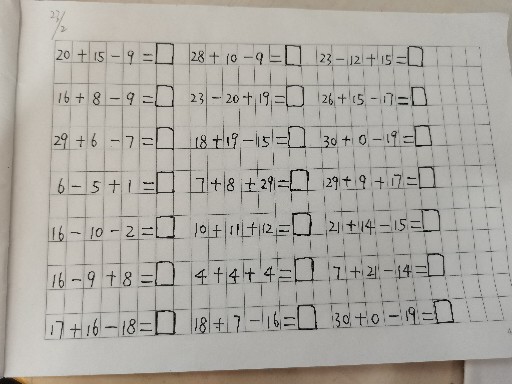 23/2
20 + 15 - 9 = □ 28 + 10 - 9 = □ 23 - 12 + 15 = □
16 + 8 - 9 = □ 23 - 20 + 19 = □ 26 + 15 - 17 = □
29 + 6 - 7 = □ 18 + 19 - 15 = □ 30 + 0 - 19 = □
6 - 5 + 1 = □ 7 + 8 + 29 = □ 29 + 9 + 17 = □
16 - 10 - 2 = □ 10 + 11 + 12 = □ 21 + 14 - 15 = □
16 - 9 + 8 = □ 4 + 4 + 4 = □ 7 + 21 - 14 = □
17 + 16 - 18 = □ 18 + 7 - 16 = □ 30 + 0 - 19 = □